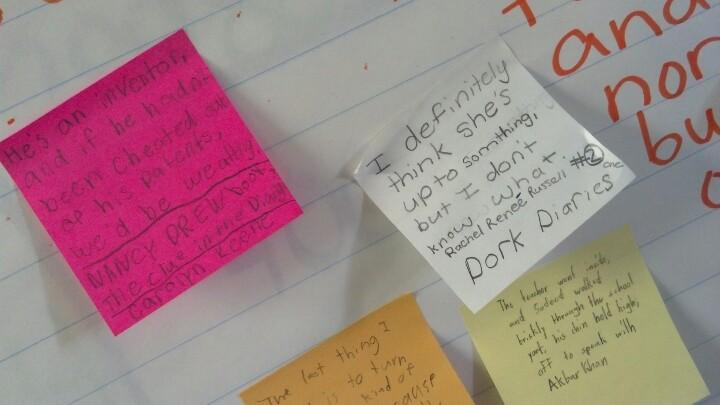 He's an inventor,
and if he hadn't
been cheated
of his patents,
we'd be wealthy
NANCY DREW book
The Clue in the
Carolyn Keene
I definitely
think she's
up to somthing,
but I don't
know what
Rachel Renée Russell #2 one
Dork Diaries
and
non
bu
The teacher went inside,
and Saeed walked
briskly through the school
yard, his chin held high,
off to speak with
Akbar Khan
The last thing I
is to turn
kind of
cause